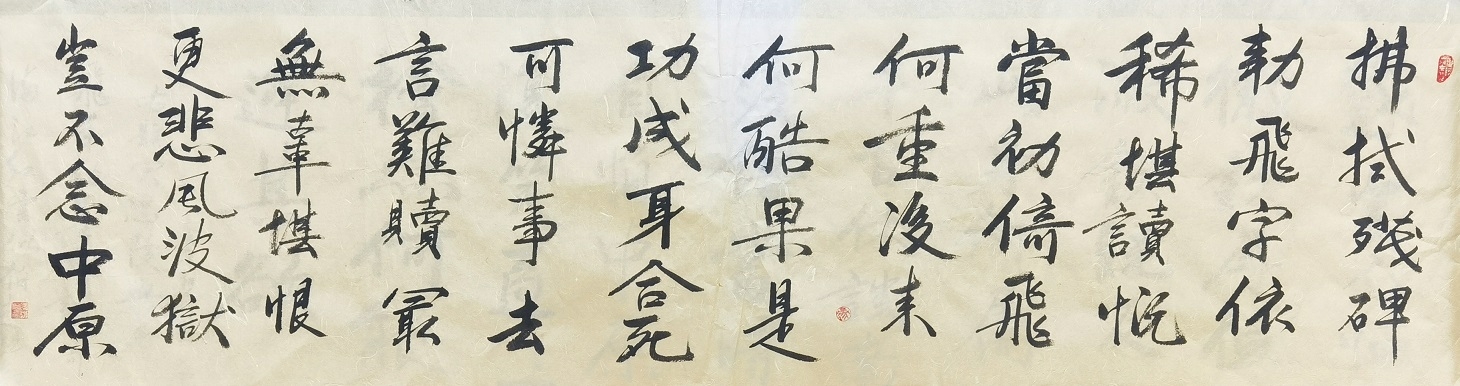 拂拭殘碑
勅飛字依
稀堪讀慨
當初倚飛
何重後来
何酷果是
功成耳合死
可憐事去
言難贖㝡
無辜堪恨
更悲風波獄
豈不念中原